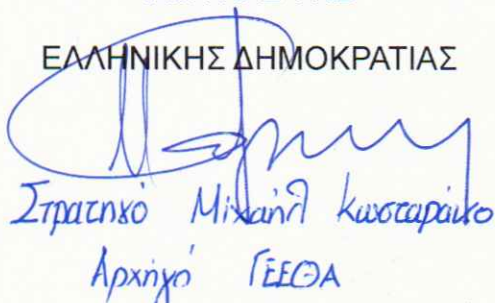 ΕΛΛΗΝΙΚΗΣ ΔΗΜΟΚΡΑΤΙΑΣ
Στρατηγό Μιχαήλ Κωσταράκο
Αρχηγό ΓΕΕΘΑ